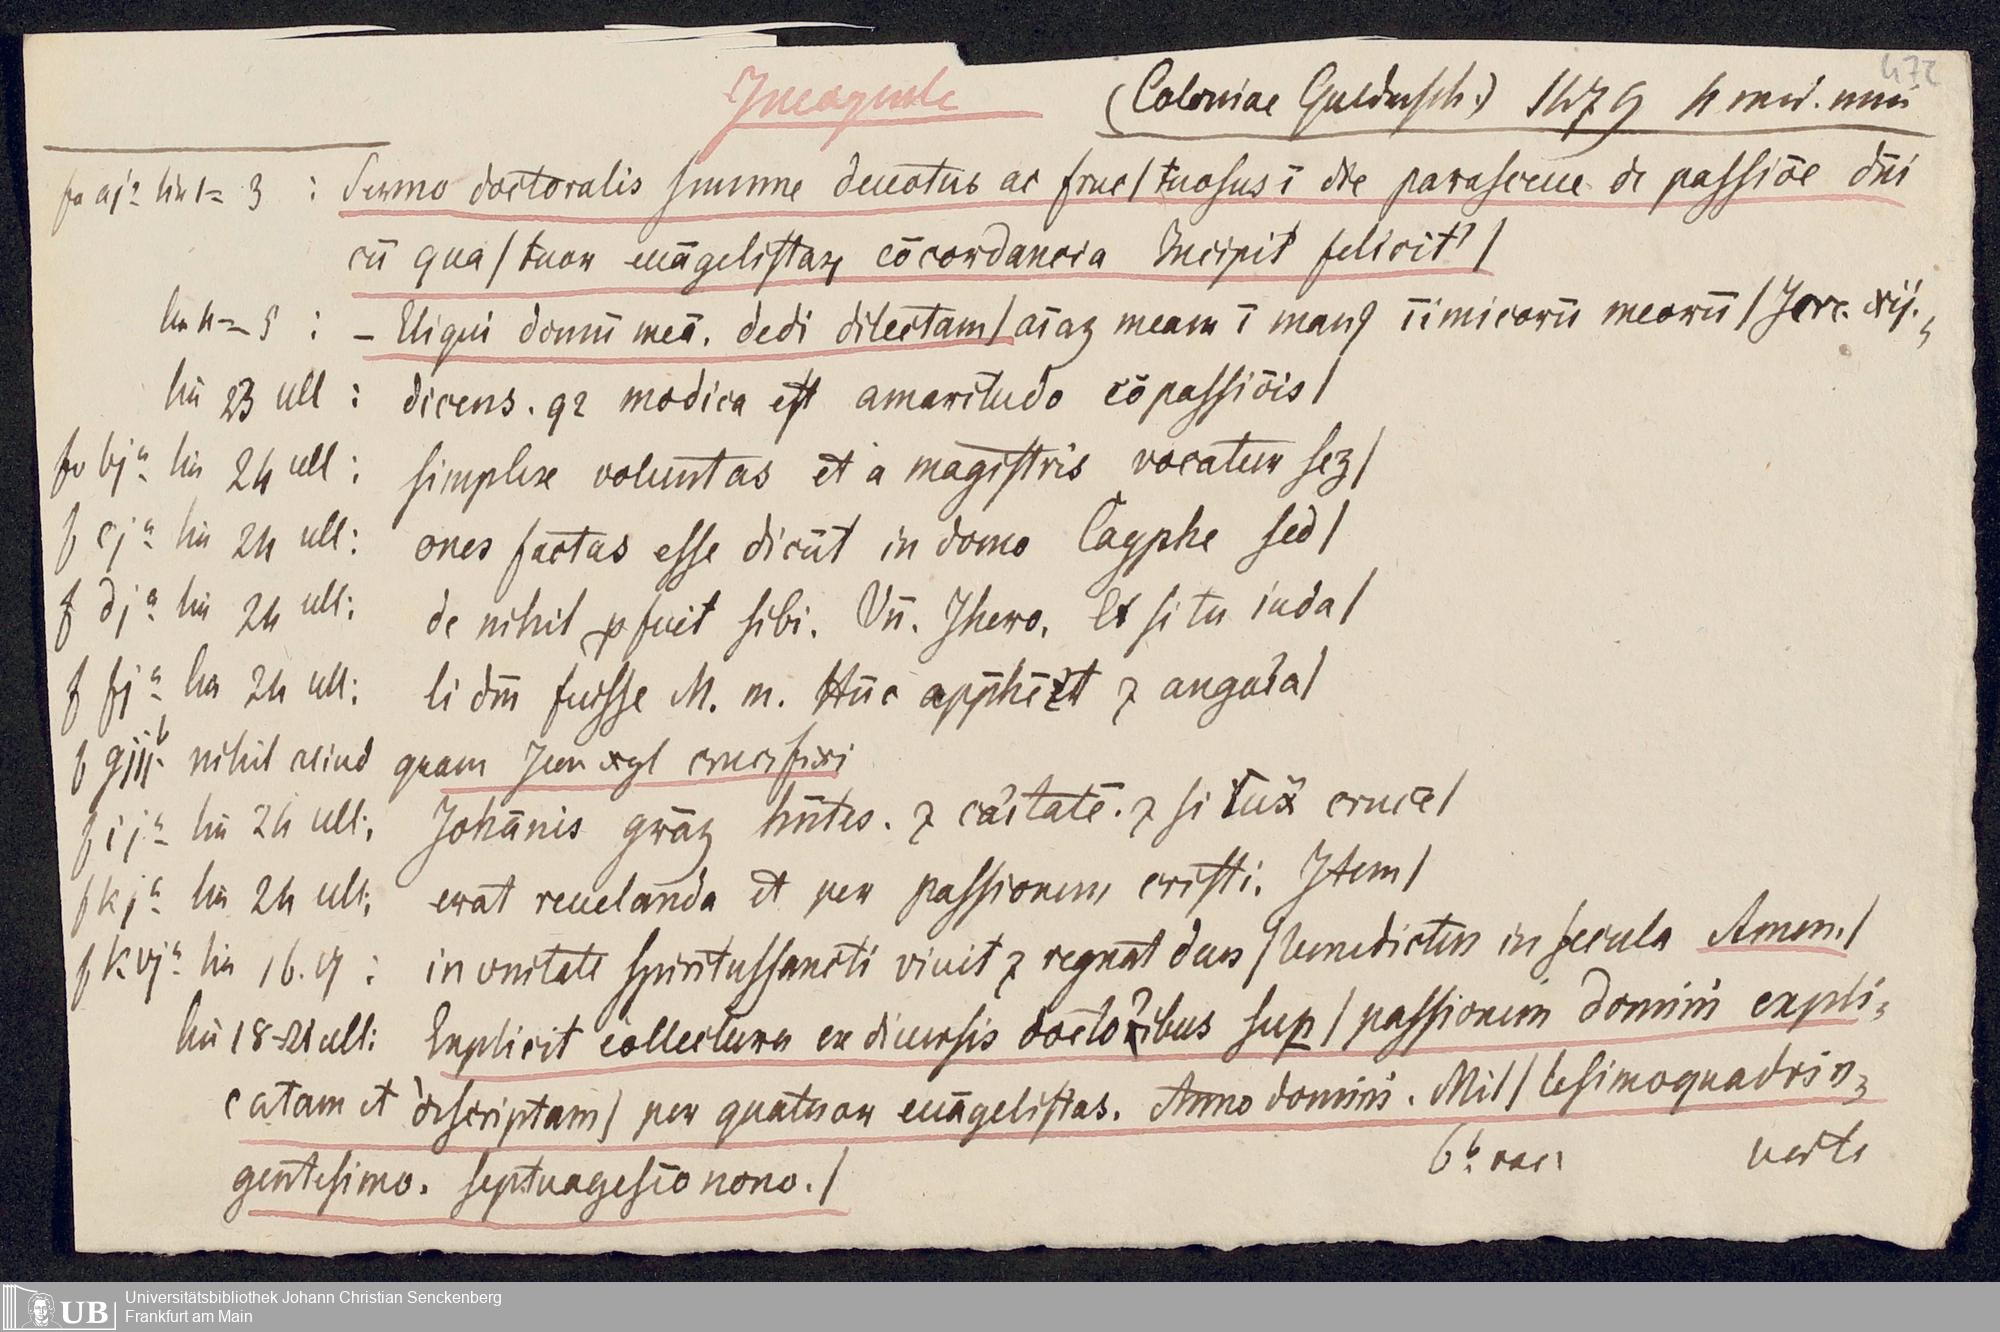 472
(Coloniae Guldensch.) 1479 4 min.
fo aj a lin 1 = 3 : Sermo doctoralis summe deuotus ac fruc/tuosus ī die parasceue de passiōe dn̄i
cū qua/tuor euāgelistaꝝ cōcordancia Incipit felicit' /
lin 4 = 5 : – Eliqui domū meā. dedi dilectam/ aīaꝫ meam ī manꝰ īimicorū meorū / Jere. xij.
lin 23 ult : dicens. qꝛ modica est amaritudo cōpassiōis /
fo bj a lin 24 ult : simplex voluntas et a magistris vocatur seꝫ /
f cj a lin 24 ult : ones factas esse dicūt in domo Cayphe sed /
f dj a lin 24 ult : de nihil ꝓfuit sibi. Vn̄. Jhero. Et si tu iuda /
f fj a lin 24 ult : li dm̄ fuisse M. m. Hūc ⁊
f giij b nihil aliud quam crucifixi
f ij a lin 24 ult : Johānis grāꝫ hn̄tes. ⁊ cāitatē. ⁊ si crucē /
f kj a lin 24 ult : erat reuelanda et per passionem cristi. Item /
f kvj a lin 16.17 : in vnitate spiritussancti viuit ⁊ regnat deus / benedictus in secula Amen. /
lin 18-21 ult : Explicit collectura ex diuersis doctoribus suꝑ / passionem domini expli-
catam et descriptam / per quatuor euāgelistas. Anno domini. Mil / lesimoquadrin-
gentesimo. septuagesīo nono. /
6 b vac. verte
Universitätsbibliothek Johann Christian Senckenberg
UB Frankfurt am Main